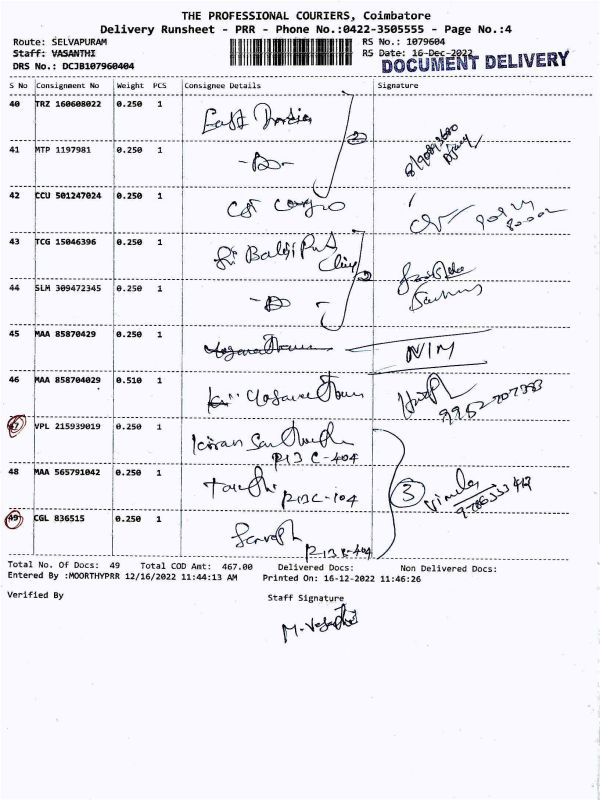 THE PROFESSIONAL COURIERS, Coimbatore
Delivery Runsheet - PRR - Phone No.:0422-3505555 - Page No.:4
Route: SELVAPURAM RS No.: 1079604
Staff: VASANTHI RS Date: 16-Dec-2022
DRS No.: DCJB107960404 DOCUMENT DELIVERY
S No Consignment No Weight PCS Consignee Details Signature
40 TRZ 160608022 0.250 1 East India
41 MTP 1197981 0.250 1 -Do- 2
42 CCU 501247024 0.250 1
43 TCG 15046396 0.250 1 Sri Balaji
44 SLM 309472345 0.250 1 -Do- 2
45 MAA 85870429 0.250 1 N/M
46 MAA 858704029 0.510 1
47 VPL 215939019 0.250 1 Kiran
P13 C-404
48 MAA 565791042 0.250 1 P13C-104 3 Vimala
49 CGL 836515 0.250 1
Total No. Of Docs: 49 Total COD Amt: 467.00 Delivered Docs: Non Delivered Docs:
Entered By :MOORTHYPRR 12/16/2022 11:44:13 AM Printed On: 16-12-2022 11:46:26
Verified By Staff Signature
M. Vasanthi